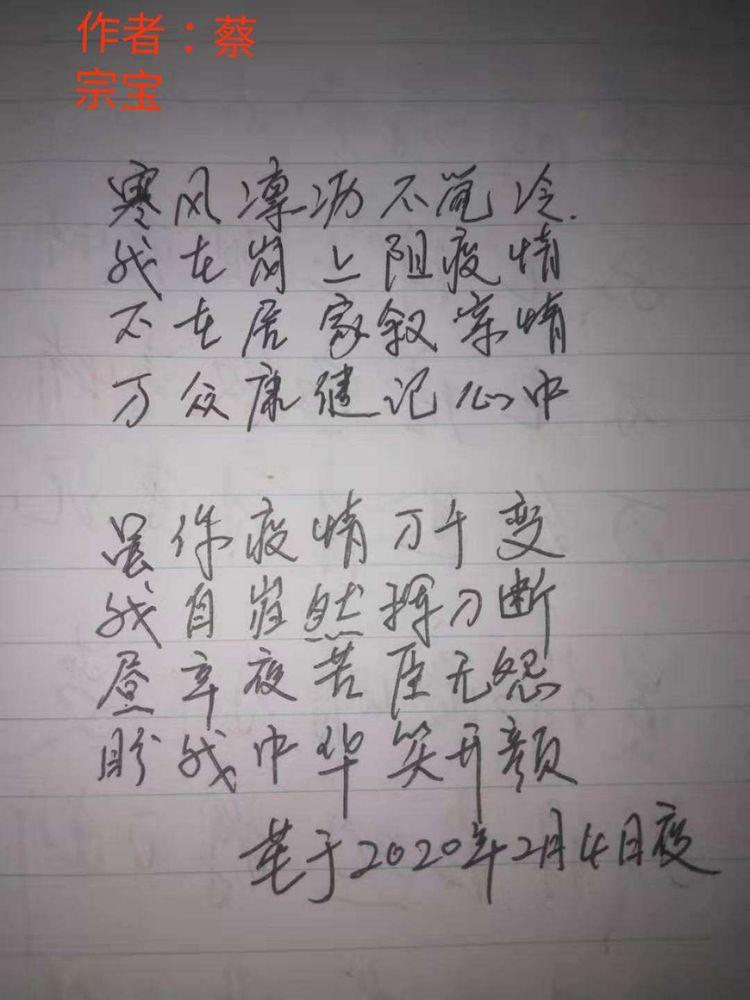 作者：蔡
宗宝
寒风凛沥不觉冷.
我在岗上阻疫情
不在居家叙亲情
万众康健记心中
虽你疫情万千变
我自岿然挥刀断
昼辛夜苦臣无怨
盼我中华笑开颜
草于2020年2月4日夜